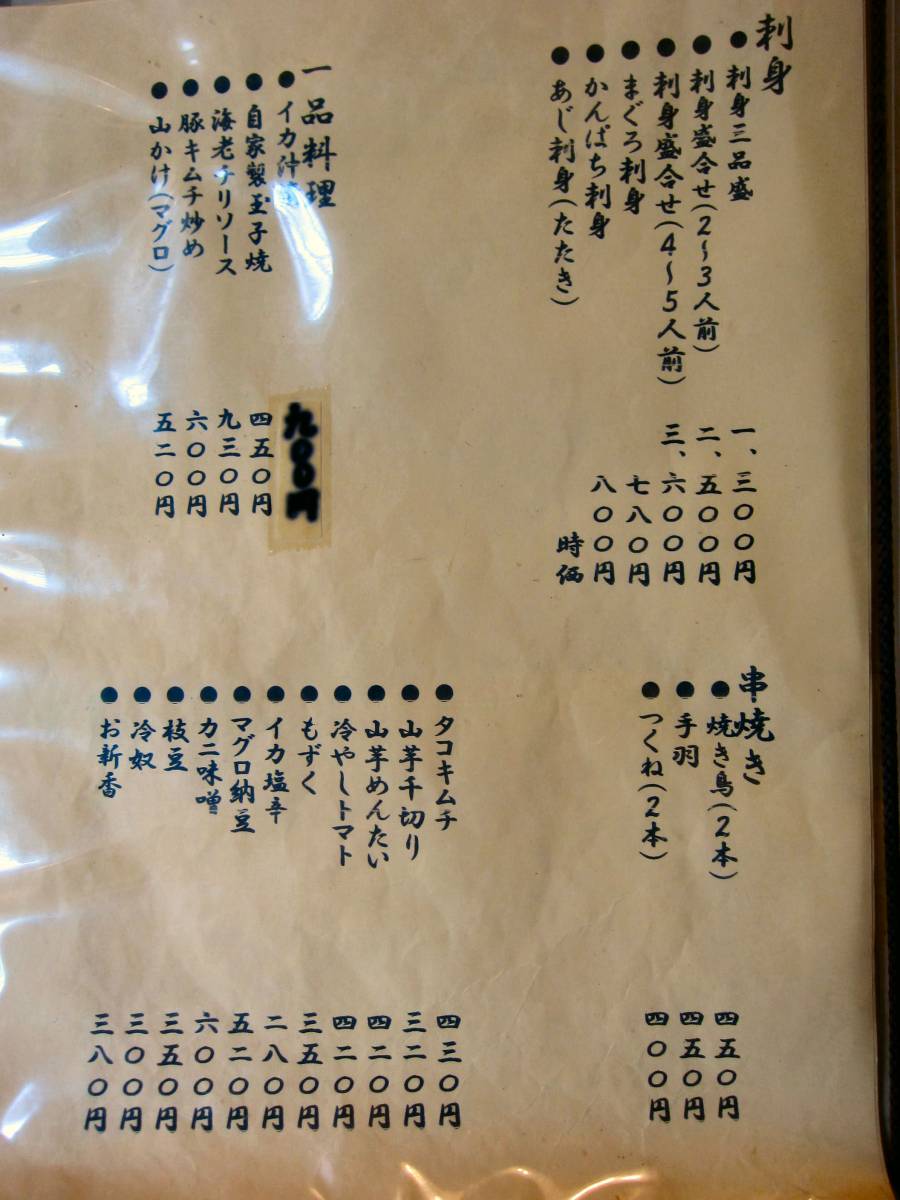 刺身
●刺身三品盛 一、三〇〇円
●刺身盛合せ(2〜3人前) 二、五〇〇円
●刺身盛合せ(4〜5人前) 三、六〇〇円
●まぐろ刺身 七八〇円
●かんぱち刺身 八〇〇円
●あじ刺身(たたき) 時価
一品料理
●イカ汁 九〇〇円
●自家製玉子焼 四五〇円
●海老チリソース 九三〇円
●豚キムチ炒め 六〇〇円
●山かけ(マグロ) 五二〇円
串焼き
●焼き鳥(2本) 四五〇円
●手羽 四五〇円
●つくね(2本) 四〇〇円
●タコキムチ 四三〇円
●山芋千切り 三二〇円
●山芋めんたい 四二〇円
●冷やしトマト 四二〇円
●もずく 三五〇円
●イカ塩辛 二八〇円
●マグロ納豆 五二〇円
●カニ味噌 六〇〇円
●枝豆 三五〇円
●冷奴 三〇〇円
●お新香 三八〇円